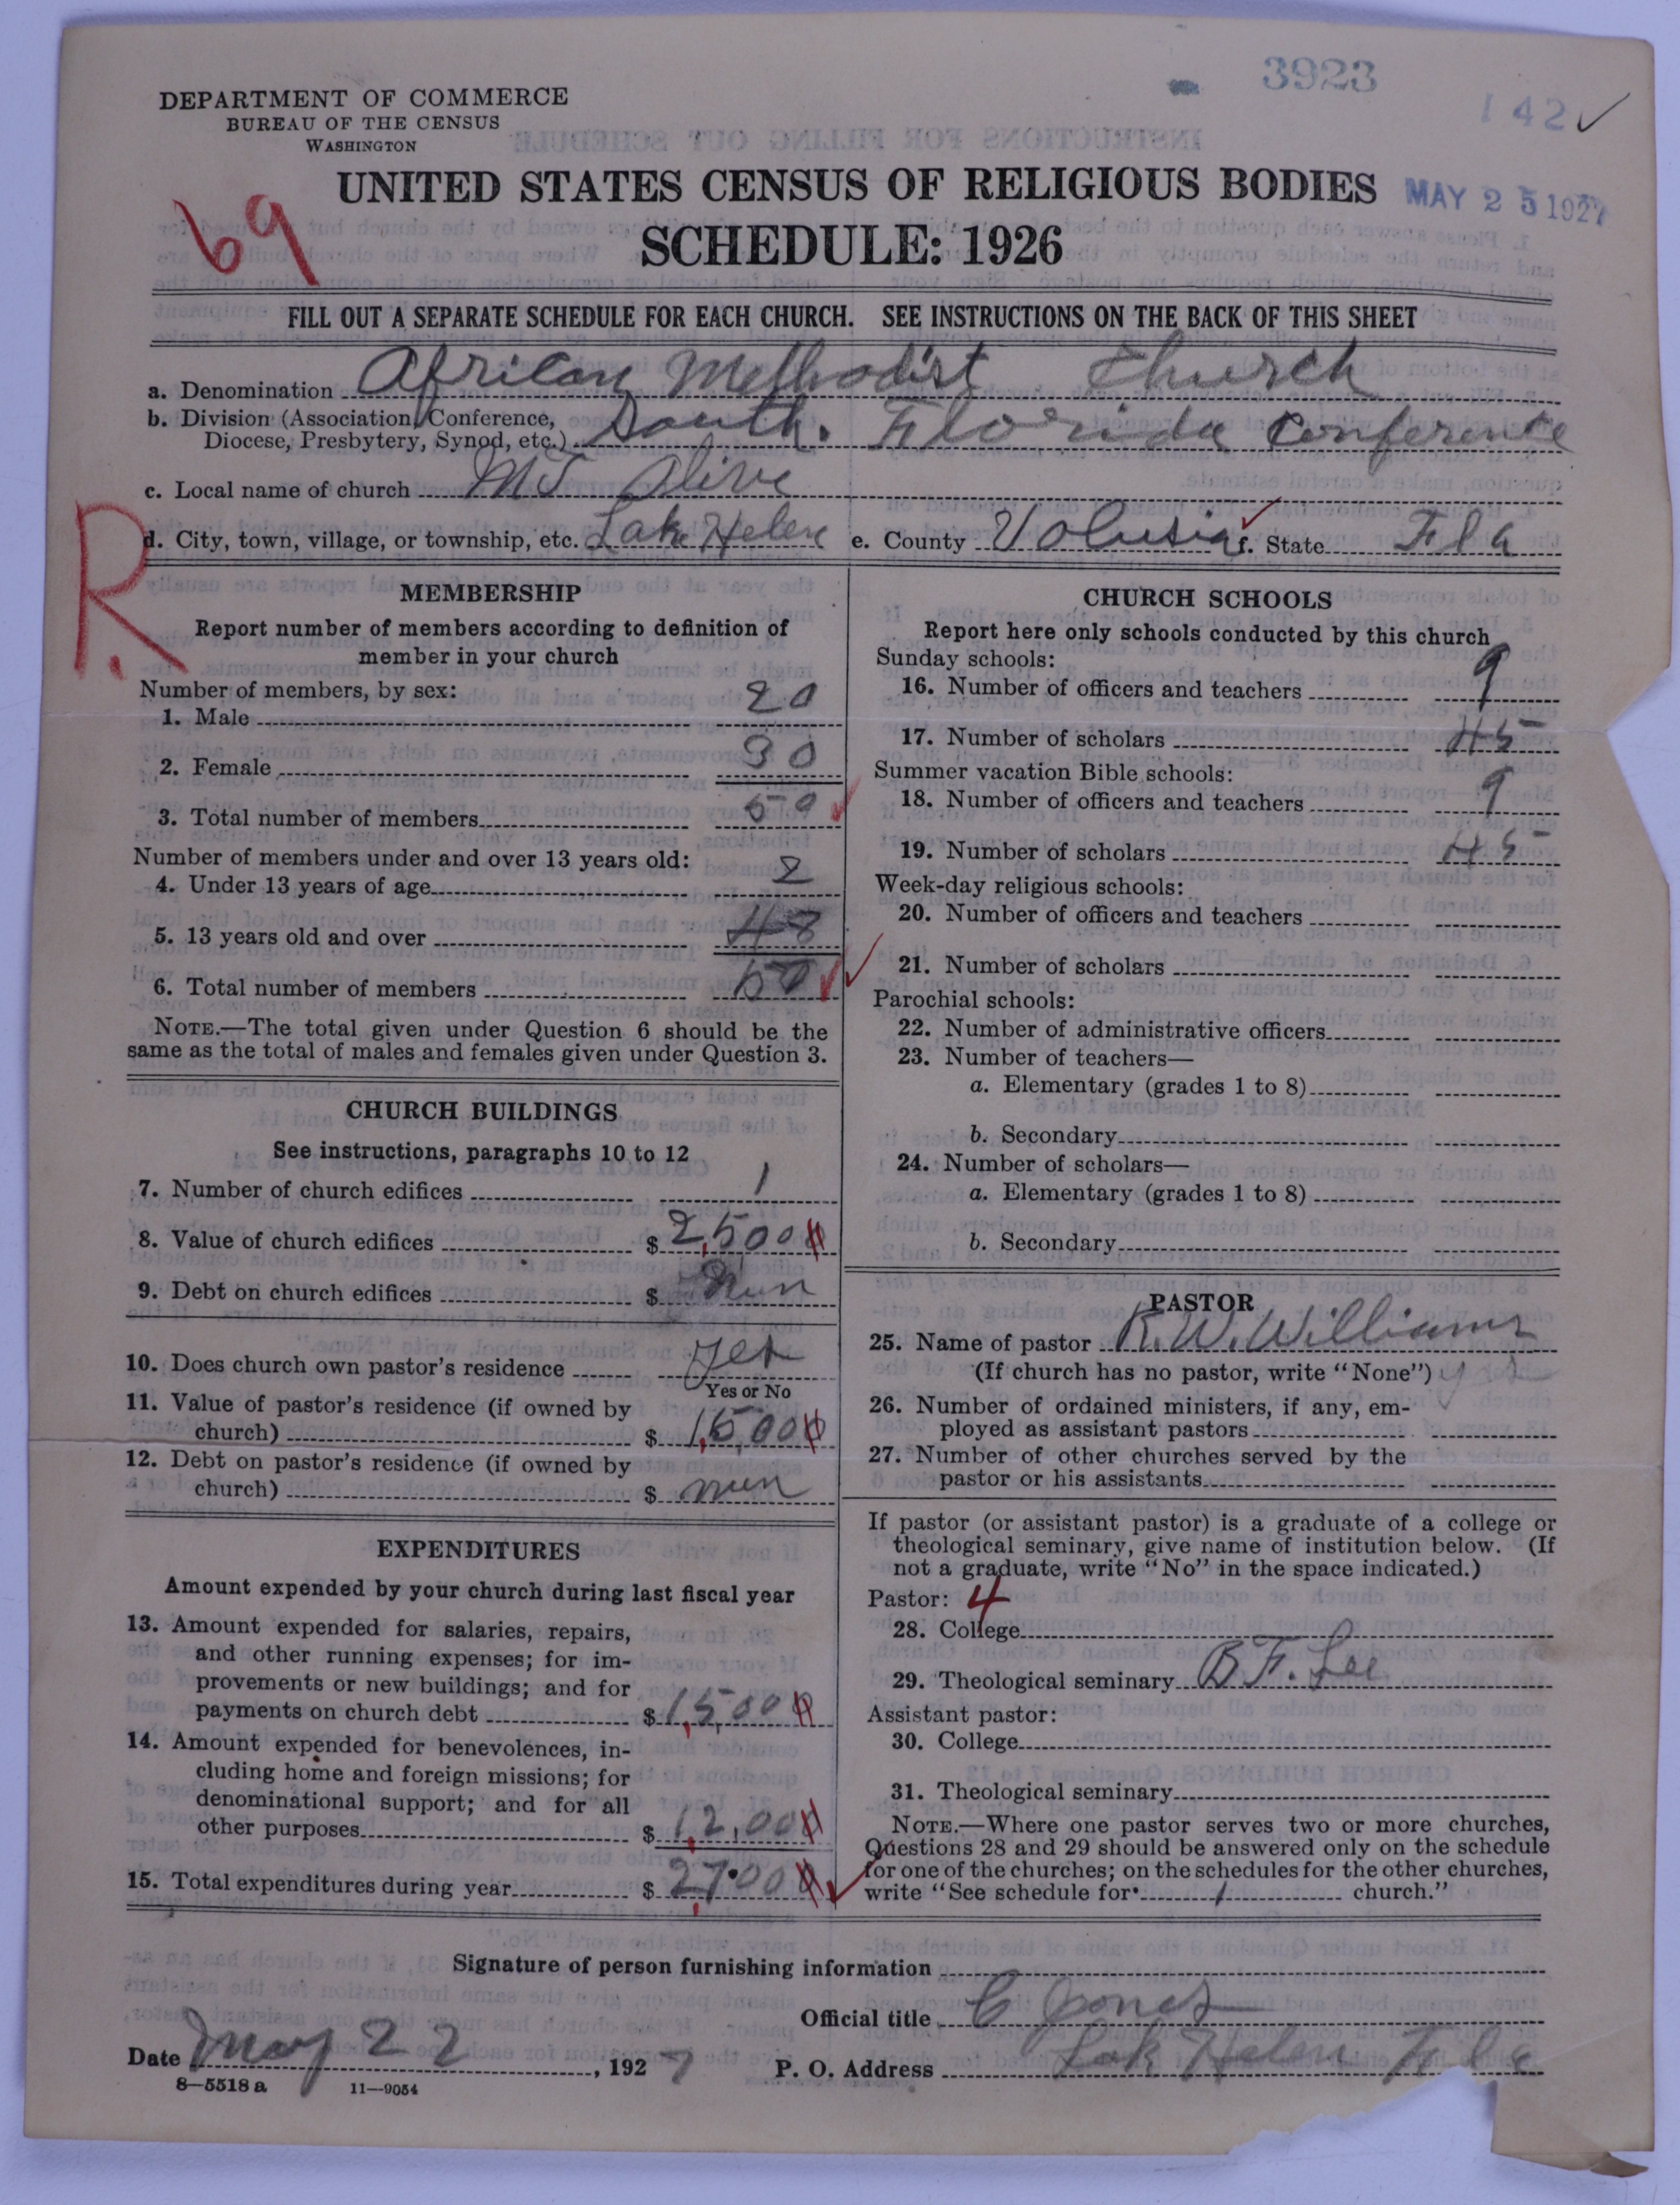 3923
142 ✓
DEPARTMENT OF COMMERCE
BUREAU OF THE CENSUS
WASHINGTON
UNITED STATES CENSUS OF RELIGIOUS BODIES
MAY 25 1927
69
SCHEDULE: 1926
FILL OUT A SEPARATE SCHEDULE FOR EACH CHURCH. SEE INSTRUCTIONS ON THE BACK OF THIS SHEET
a. Denomination African Methodist Church
b. Division (Association, Conference,
Diocese, Presbytery, Synod, etc.) South. Florida Conference
c. Local name of church Mt Olive
R.
d. City, town, village, or township, etc. Lake Helen e. County Volusia f. State Fla
MEMBERSHIP
Report number of members according to definition of
member in your church
Number of members, by sex:
1. Male 20
2. Female 30
3. Total number of members 50
Number of members under and over 13 years old:
4. Under 13 years of age 2
5. 13 years old and over 48
6. Total number of members 50
NOTE.—The total given under Question 6 should be the
same as the total of males and females given under Question 3.
CHURCH BUILDINGS
See instructions, paragraphs 10 to 12
7. Number of church edifices 1
8. Value of church edifices $ 2,500
9. Debt on church edifices $ nun
10. Does church own pastor's residence yes
Yes or No
11. Value of pastor's residence (if owned by
church) $ 1,500
12. Debt on pastor's residence (if owned by
church) $ nun
EXPENDITURES
Amount expended by your church during last fiscal year
13. Amount expended for salaries, repairs,
and other running expenses; for im-
provements or new buildings; and for
payments on church debt $ 1,500
14. Amount expended for benevolences, in-
cluding home and foreign missions; for
denominational support; and for all
other purposes $ 1,200
15. Total expenditures during year $ 2700
CHURCH SCHOOLS
Report here only schools conducted by this church
Sunday schools:
16. Number of officers and teachers 9
17. Number of scholars 45
Summer vacation Bible schools:
18. Number of officers and teachers 9
19. Number of scholars 45
Week-day religious schools:
20. Number of officers and teachers
21. Number of scholars
Parochial schools:
22. Number of administrative officers
23. Number of teachers—
a. Elementary (grades 1 to 8)
b. Secondary
24. Number of scholars—
a. Elementary (grades 1 to 8)
b. Secondary
PASTOR
25. Name of pastor R. W. Williams
(If church has no pastor, write "None")
26. Number of ordained ministers, if any, em-
ployed as assistant pastors
27. Number of other churches served by the
pastor or his assistants
If pastor (or assistant pastor) is a graduate of a college or
theological seminary, give name of institution below. (If
not a graduate, write "No" in the space indicated.)
Pastor: 4
28. College
29. Theological seminary B F. Lee
Assistant pastor:
30. College
31. Theological seminary
NOTE.—Where one pastor serves two or more churches,
Questions 28 and 29 should be answered only on the schedule
for one of the churches; on the schedules for the other churches,
write "See schedule for 1 church."
Signature of person furnishing information
Official title C Jones
Date May 22, 1927 P. O. Address Lak Helen Fla
8—5518 a 11—9054